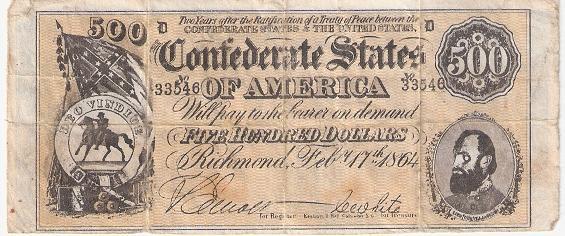 500 D Two Years after the Ratification of a Treaty of Peace between the D
CONFEDERATE STATES & THE UNITED STATES,
The Confederate States 500
No 33546 No 33546
OF AMERICA
Will pay to the bearer on demand
DEO VINDICE
FIVE HUNDRED DOLLARS
Richmond, Feby 17th 1864
for Register for Treasurer